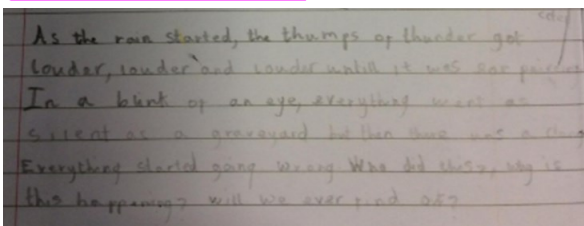 As the rain started, the thumps of thunder got
louder, louder and louder untill it was ear
In a blink of an eye, everything went as
silent as a graveyard but then there was a
Everything started going wrong Who did this?, why is
this happening? will we ever find